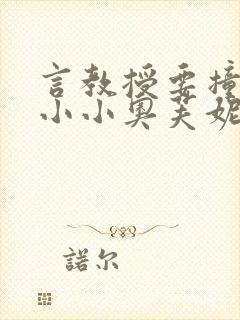 言教授要撞
小小奥芙妮
諾尔